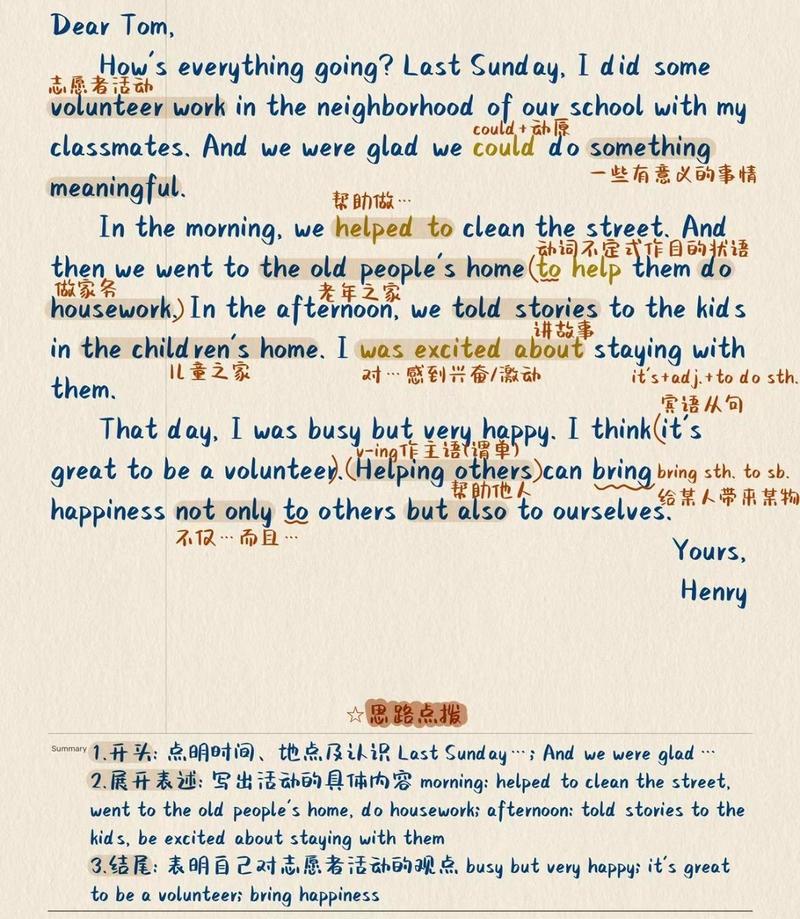 Dear Tom,
How's everything going? Last Sunday, I did some
志愿者活动
volunteer work in the neighborhood of our school with my
could+动原
classmates. And we were glad we could do something
一些有意义的事情
meaningful.
帮助做…
In the morning, we helped to clean the street. And
动词不定式作目的状语
then we went to the old people's home(to help them do
做家务 老年之家
housework.) In the afternoon, we told stories to the kids
讲故事
in the children's home. I was excited about staying with
儿童之家 对…感到兴奋/激动 it's+adj.+to do sth.
them.
宾语从句
That day, I was busy but very happy. I think(it's
v-ing作主语(谓单)
great to be a volunteer).(Helping others)can bring bring sth. to sb.
帮助他人 给某人带来某物
happiness not only to others but also to ourselves.
不仅…而且…
Yours,
Henry
☆思路点拨
Summary 1.开头: 点明时间、地点及认识 Last Sunday…; And we were glad …
2.展开表述: 写出活动的具体内容 morning: helped to clean the street,
went to the old people's home, do housework; afternoon: told stories to the
kids, be excited about staying with them
3.结尾: 表明自己对志愿者活动的观点 busy but very happy; it's great
to be a volunteer; bring happiness